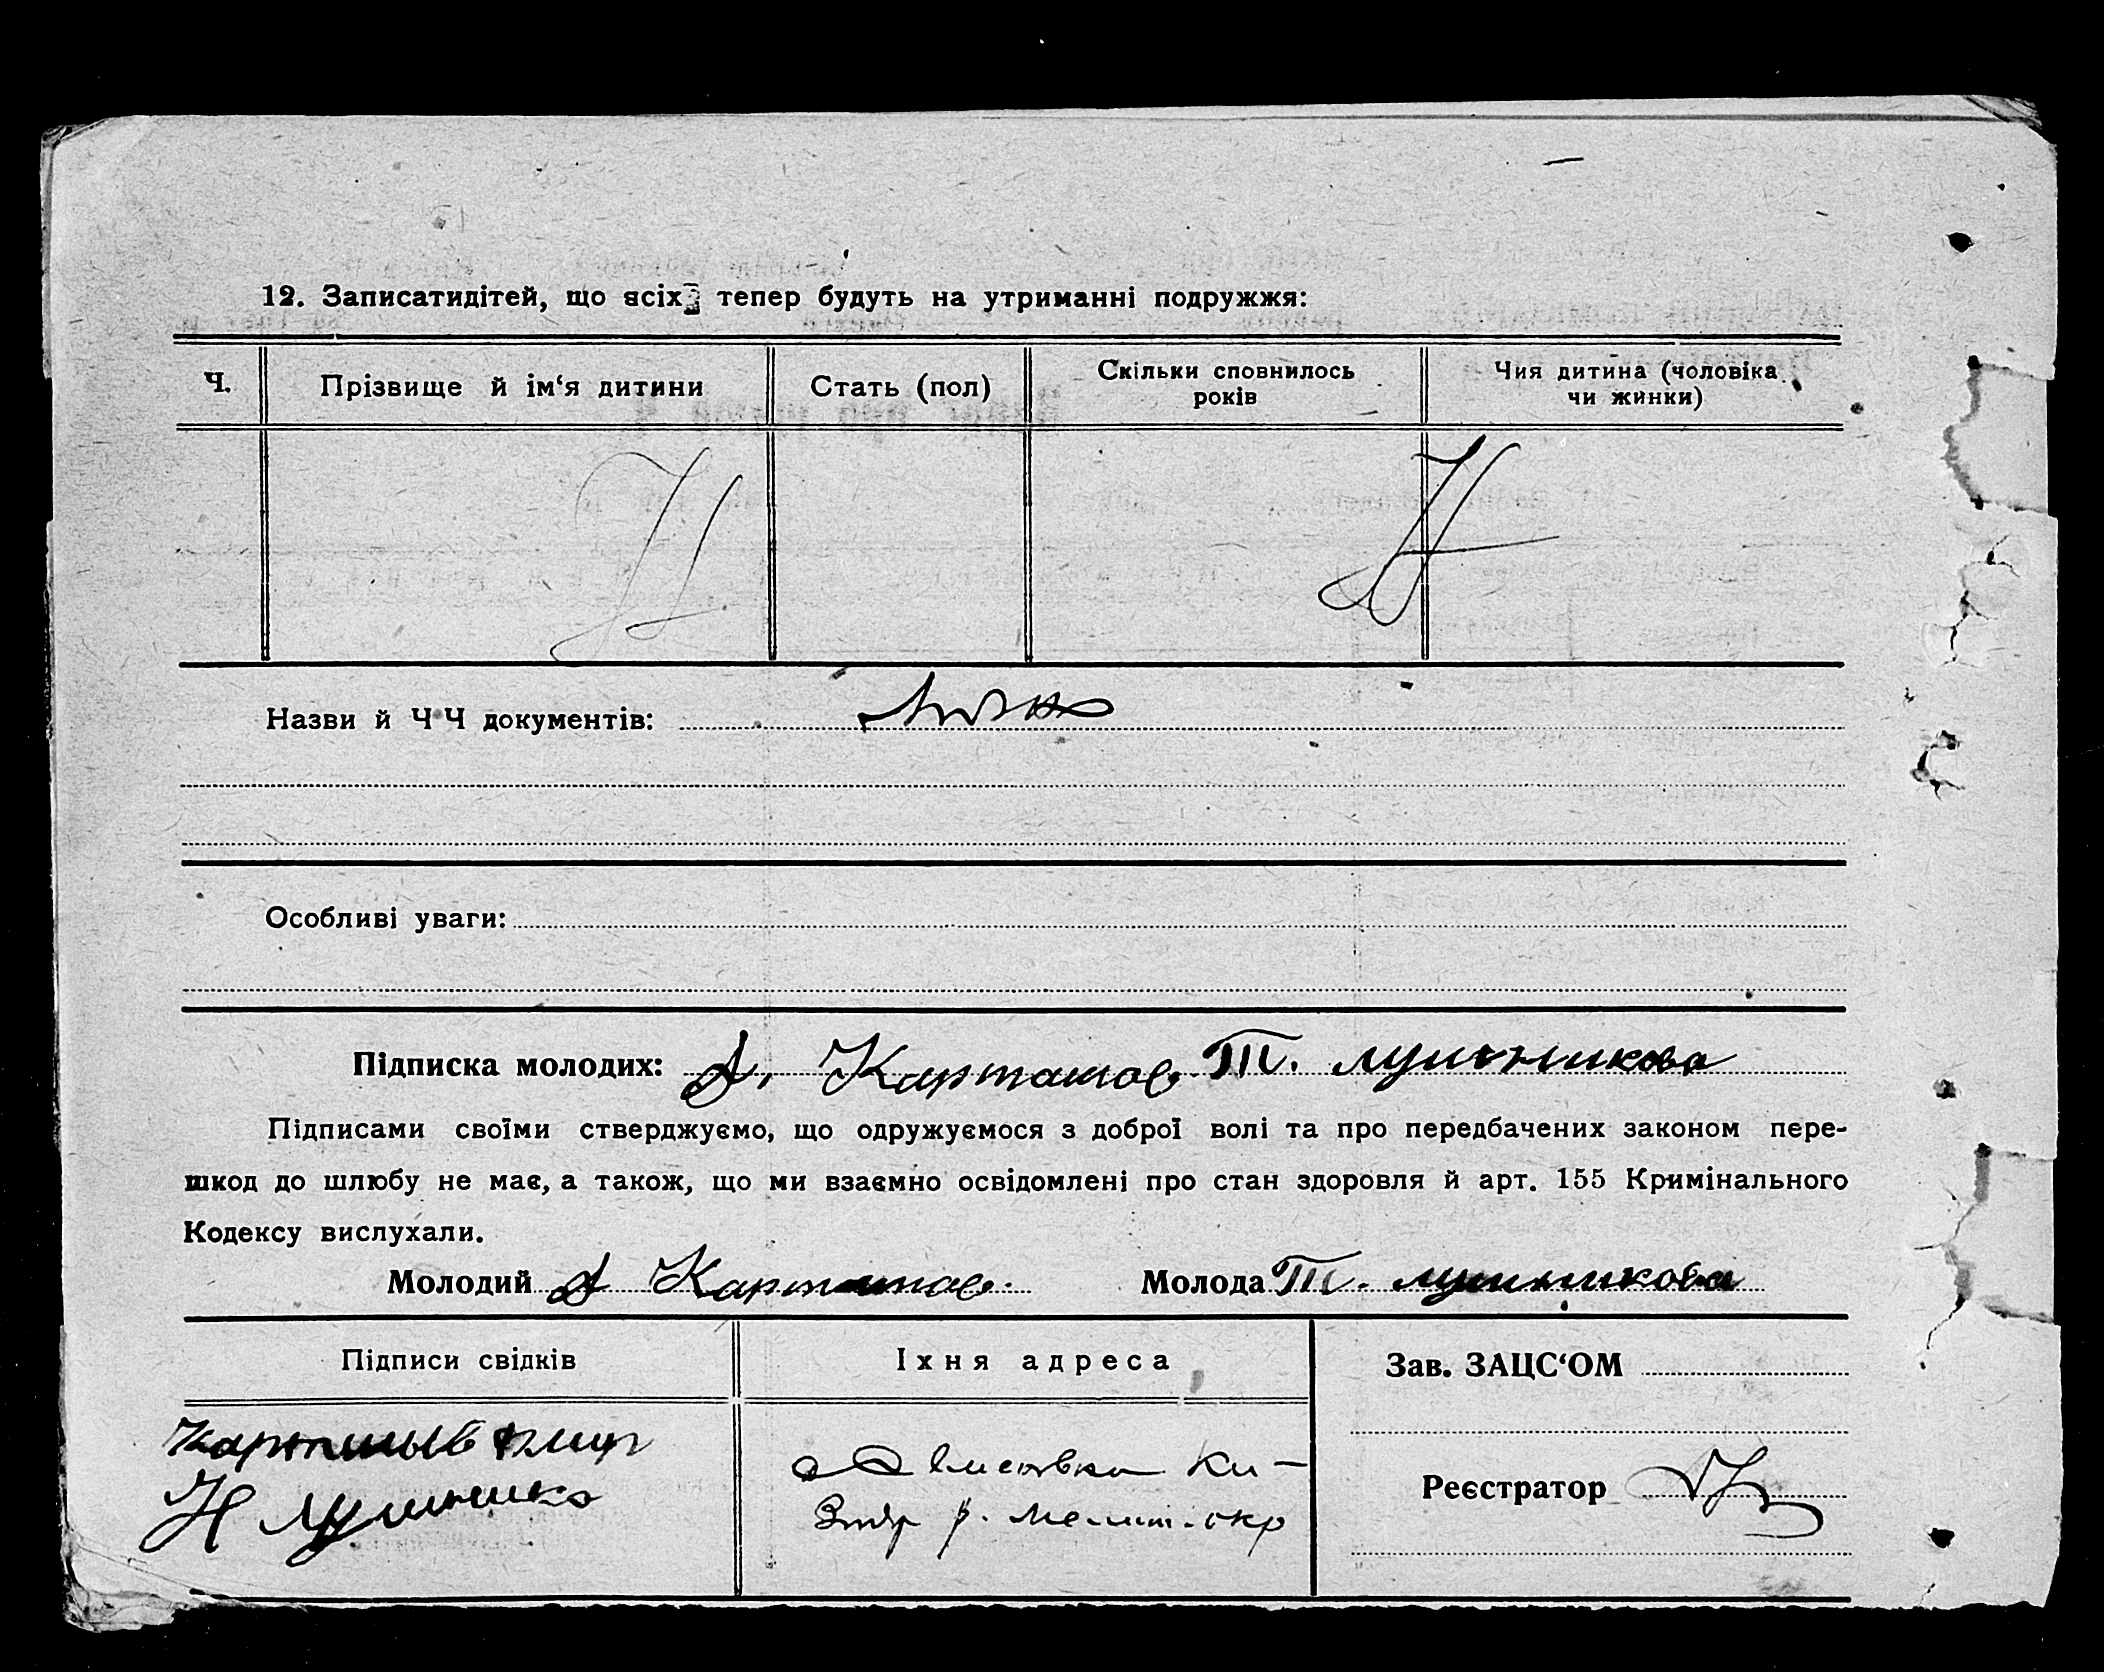 12. Записатидітей, що всіх тепер будуть на утриманні подружжя:
Ч.
Прізвище й ім‘я дитини
Стать (пол)
Скільки сповнилось
років
Чия дитина (чоловіка
чи жинки)
Назви й Ч Ч документів:
Особливі уваги:
Підписка молодих: Д. Карташов Т. Мушникова
Підписами своїми стверджуємо, що одружуємося з доброї волі та про передбачених законом пере-
шкод до шлюбу не має, а також, що ми взаємно освідомлені про стан здоровля й арт. 155 Кримінального
Кодексу вислухали.
Молодий Д Карташов. Молода Т. Мушникова
Підписи свідків
Їхня адреса
Зав. ЗАЦС‘ОМ
Н
р. Мелит. окр
Реєстратор